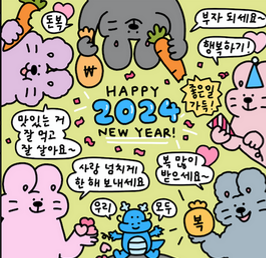 돈복
부자 되세요~
행복하기!
₩
HAPPY
2024
NEW YEAR!
좋은일
가득!
맛있는 거
잘 먹고
잘 살아요~
사랑 넘치게
한 해 보내세요
복 많이
받으세요~
우리
모두
복